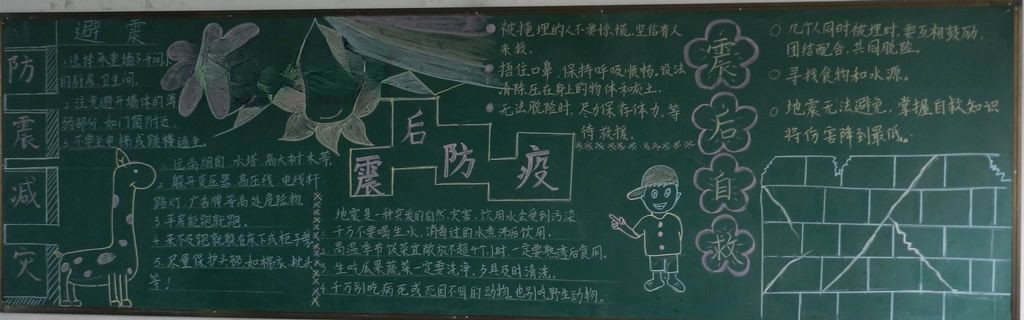 防震减灾
避震
1.选择承重墙多、开间小
的厨房、卫生间。
2.注意避开墙体的薄
弱部分,如门窗附近。
3.不要乘电梯或跳楼逃生。
1.远离烟囱、水塔、高大树木等。
2.躲开变压器、高压线、电线杆、
路灯、广告牌等高处危险物。
3.平房能跑就跑。
4.来不及跑就躲在床下或柜子旁。
5.尽量保护头部,如棉衣、枕头
等!
震后防疫
地震是一种突发的自然灾害,饮用水会受到污染
1.千万不要喝生水,消毒过的水煮沸后饮用。
2.高温季节饭菜宜敞放不超4个小时一定要熟透后食用。
3.生吃瓜果蔬菜一定要洗净,歺具及时清洗。
4.千万别吃病死或死因不明的动物,也别吃野生动物。
被掩埋的人不要惊慌,坚信有人
来救。
捂住口鼻,保持呼吸顺畅,设法
清除压在身上的物体和灰土。
无法脱险时,尽力保存体力,等
待救援。
震后自救
几个人同时被埋时,要互相鼓励,
团结配合,共同脱险。
寻找食物和水源。
地震无法避免,掌握自救知识
将伤害降到最低。